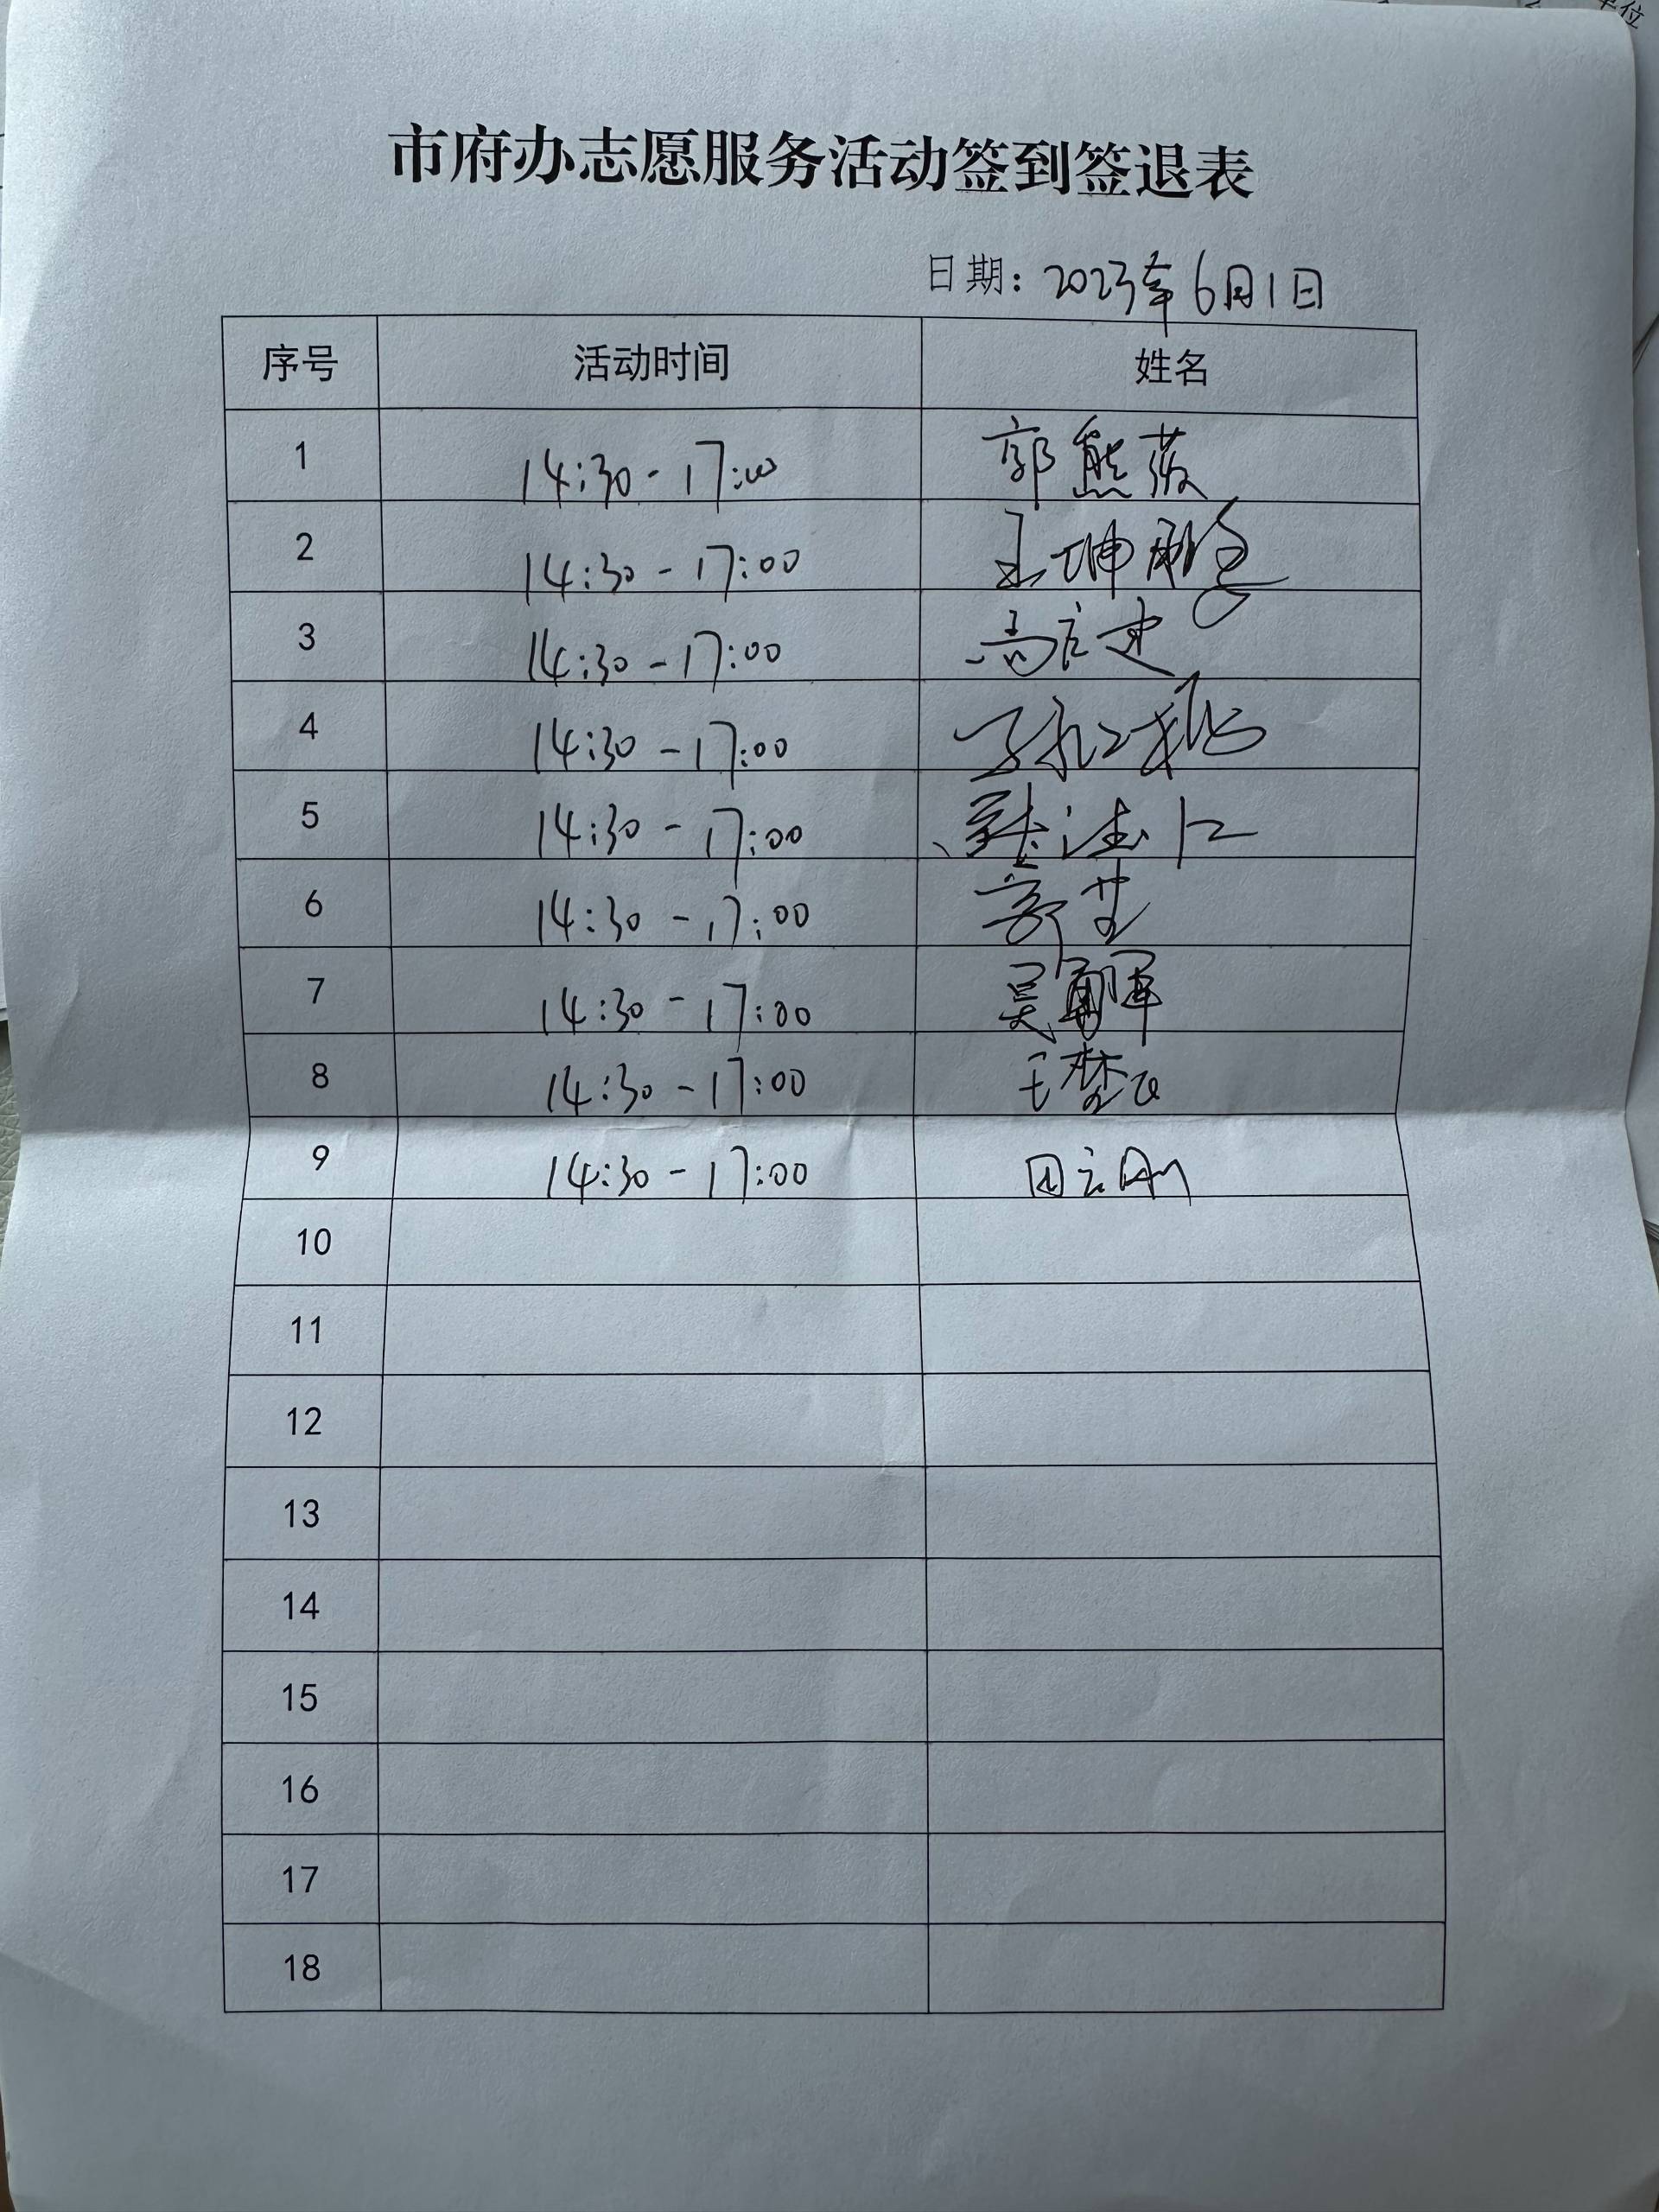 市府办志愿服务活动签到签退表
日期：2023年6月1日
序号 活动时间 姓名
1 14:30-17:00 郭熊薇
2 14:30-17:00 王坤鹏
3 14:30-17:00 高广建
4 14:30-17:00
5 14:30-17:00
6 14:30-17:00
7 14:30-17:00 吴
8 14:30-17:00 王梦飞
9 14:30-17:00 田云刚
10
11
12
13
14
15
16
17
18